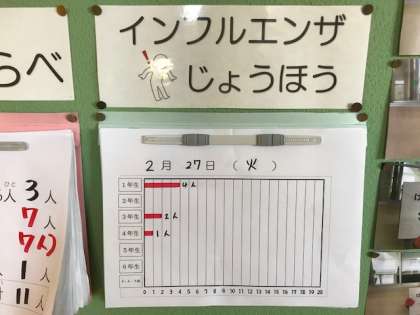 インフルエンザ
じょうほう
らべ
2月 27日 (火)
1年生 4人
2年生
3年生 2人
4年生 1人
5年生
6年生
0 1 2 3 4 5 6 7 8 9 10 11 12 13 14 15 16 17 18 19 20
人 3人
7人
7人
1人
11人